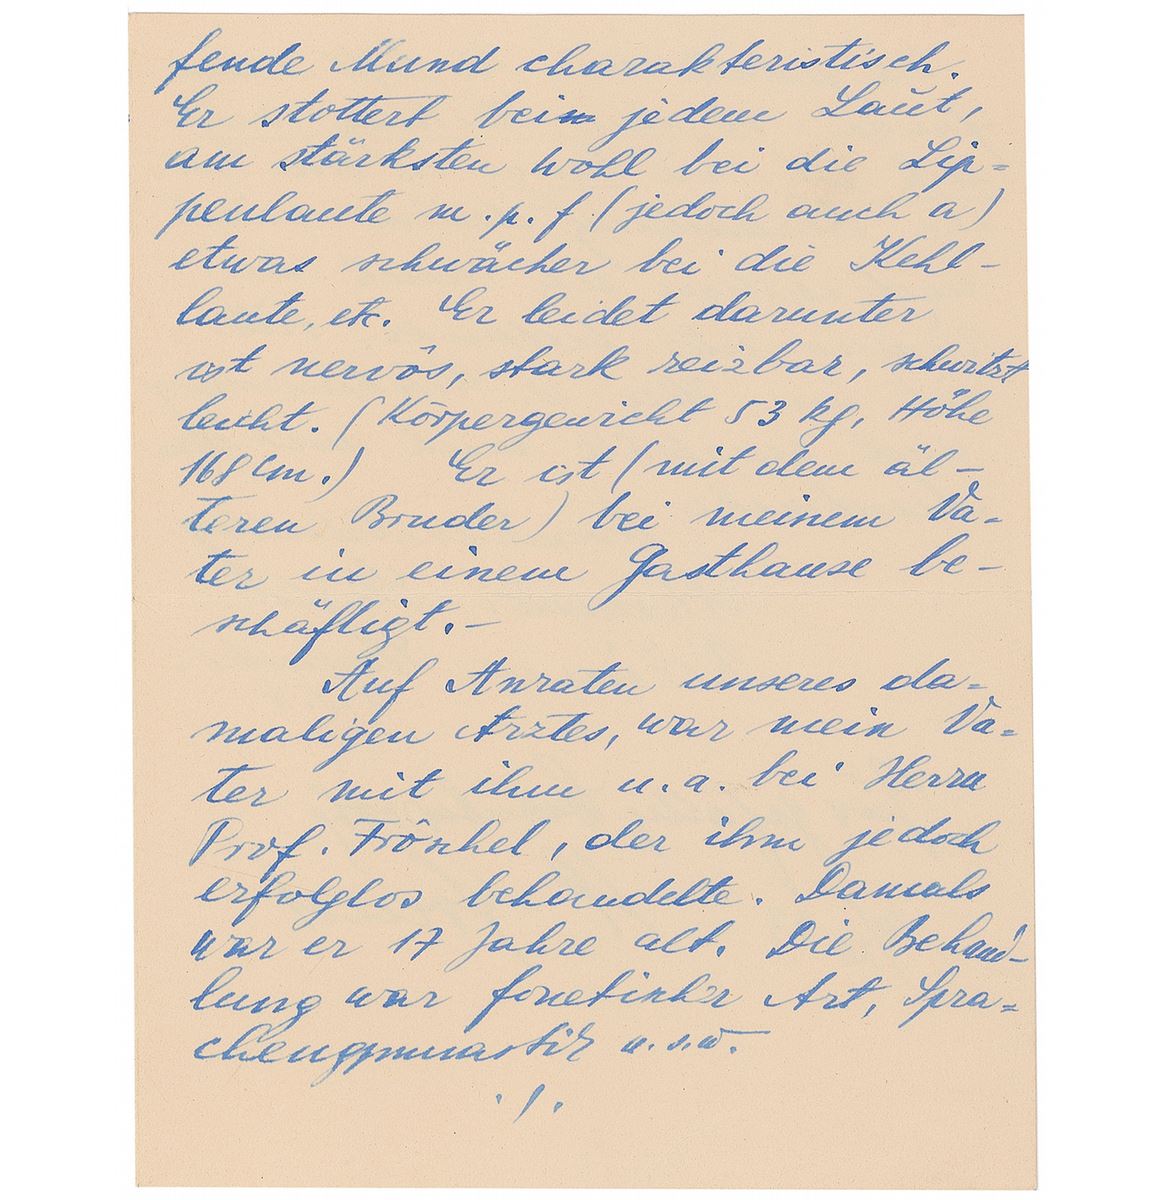 fende Mund charakteristisch.
Er stottert bei jedem Laut,
am stärksten wohl bei die Lip=
penlaute m. p. f (jedoch auch a)
etwas schwächer bei die Kehl-
laute, etc. Er leidet darunter
ist nervös, stark reizbar, schwitzt
leicht. (Körpergewicht 53 kg, Höhe
168 cm.) Er ist (mit dem äl-
teren Bruder) bei meinem Va-
ter in einem Gasthause be-
schäftigt.-
Auf Anraten unseres da-
maligen Arztes, war mein Va=
ter mit ihm u. a. bei Herrn
Prof. Fröschel, der ihm jedoch
erfolglos behandelte. Damals
war er 17 Jahre alt. Die Behand-
lung war fonetischer Art, Spra=
chengymnastik u.s.w.
./.